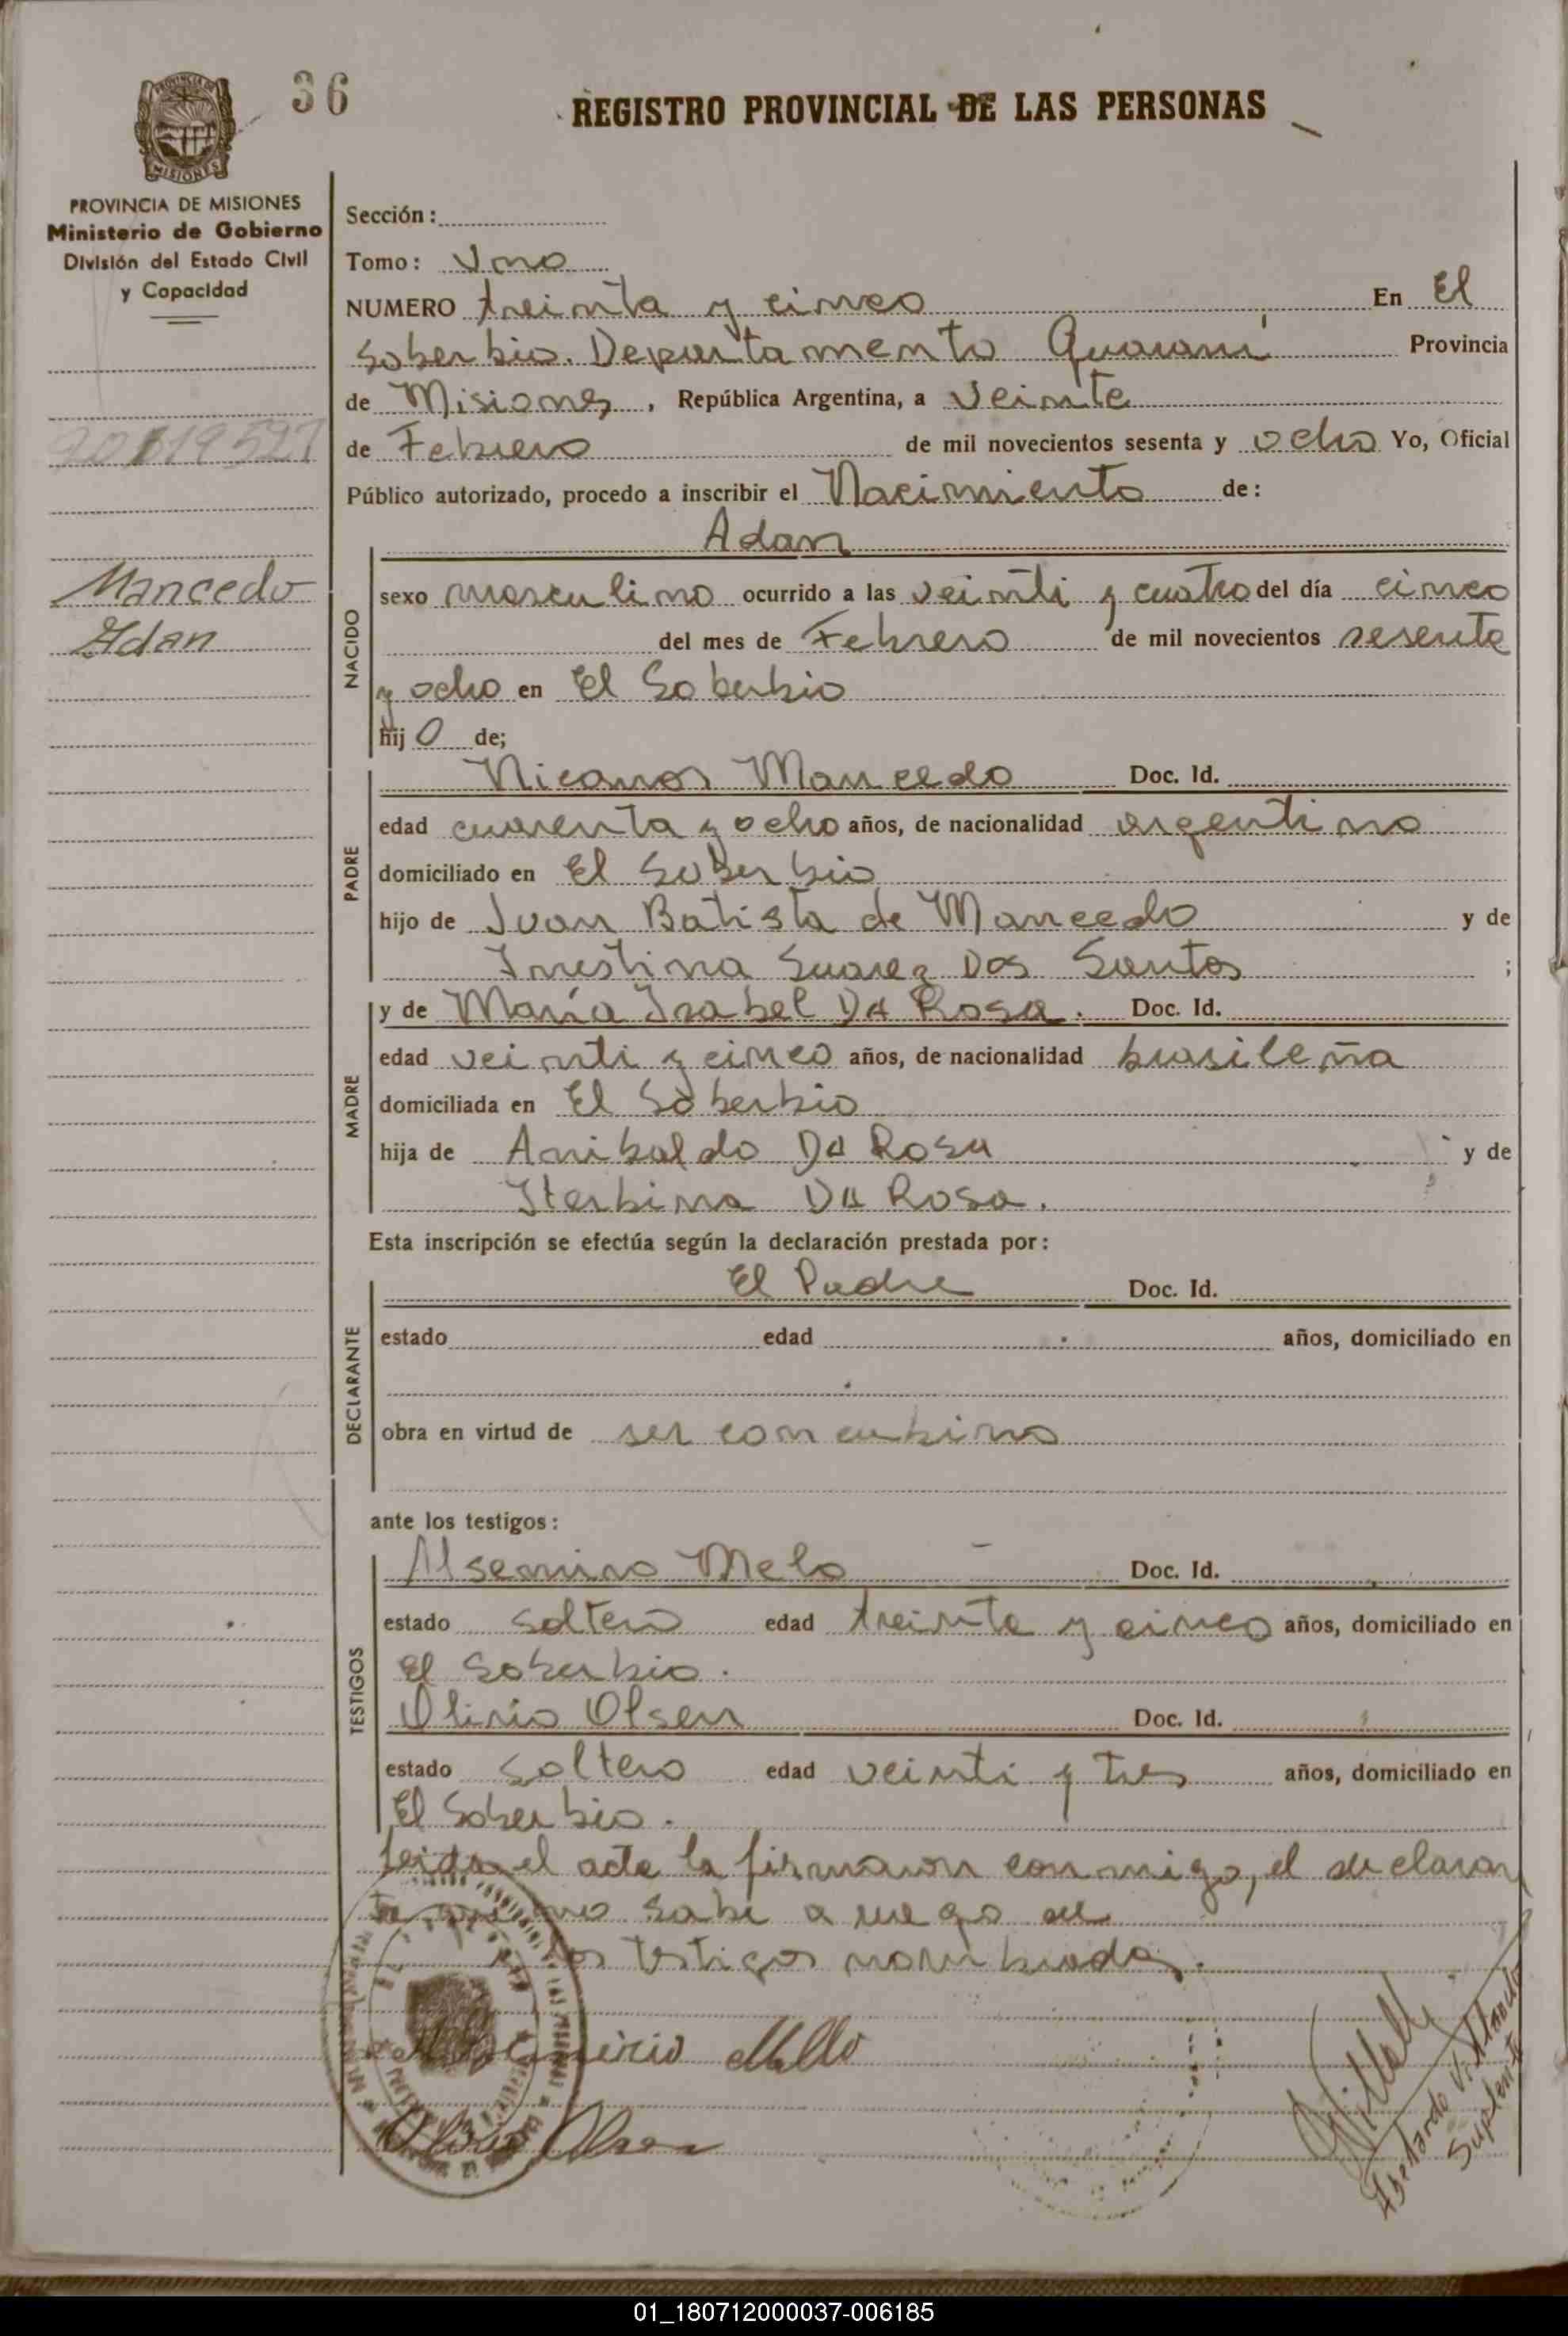 36
REGISTRO PROVINCIAL DE LAS PERSONAS
PROVINCIA DE
MISIONES
PROVINCIA DE MISIONES
Ministerio de Gobierno
División del Estado Civil
y Capacidad
Sección:
Tomo: Uno
NUMERO treinta y cinco En El
Soberbio. Departamento Guaraní Provincia
de Misiones, República Argentina, a Veinte
de Febrero de mil novecientos sesenta y ocho Yo, Oficial
Público autorizado, procedo a inscribir el Nacimiento de:
Adan
Mancedo
Adan
NACIDO
sexo masculino ocurrido a las veinti y cuatro del día cinco
del mes de Febrero de mil novecientos sesenta
y ocho en El Soberbio
hijo de;
PADRE
Nicanor Mancedo Doc. Id.
edad cuarenta y ocho años, de nacionalidad argentino
domiciliado en El Soberbio
hijo de Juan Batista de Mancedo y de
Inestina Suarez Dos Santos ;
MADRE
y de María Isabel Da Rosa. Doc. Id.
edad veinti y cinco años, de nacionalidad brasileña
domiciliada en El Soberbio
hija de Anibaldo Da Rosa y de
Iterbina Da Rosa.
Esta inscripción se efectúa según la declaración prestada por:
DECLARANTE
El Padre Doc. Id.
estado edad años, domiciliado en
obra en virtud de ser concubino
ante los testigos:
TESTIGOS
Alsemiro Melo Doc. Id.
estado soltero edad treinta y cinco años, domiciliado en
El Soberbio.
Olirio Olsen Doc. Id.
estado soltero edad veinti y tres años, domiciliado en
El Soberbio.
Leida el acta la firmaron conmigo, el declaran
te que no sabe a ruego de
los testigos nombrados.
Mello
Olsen
Suplente
01_180712000037-006185